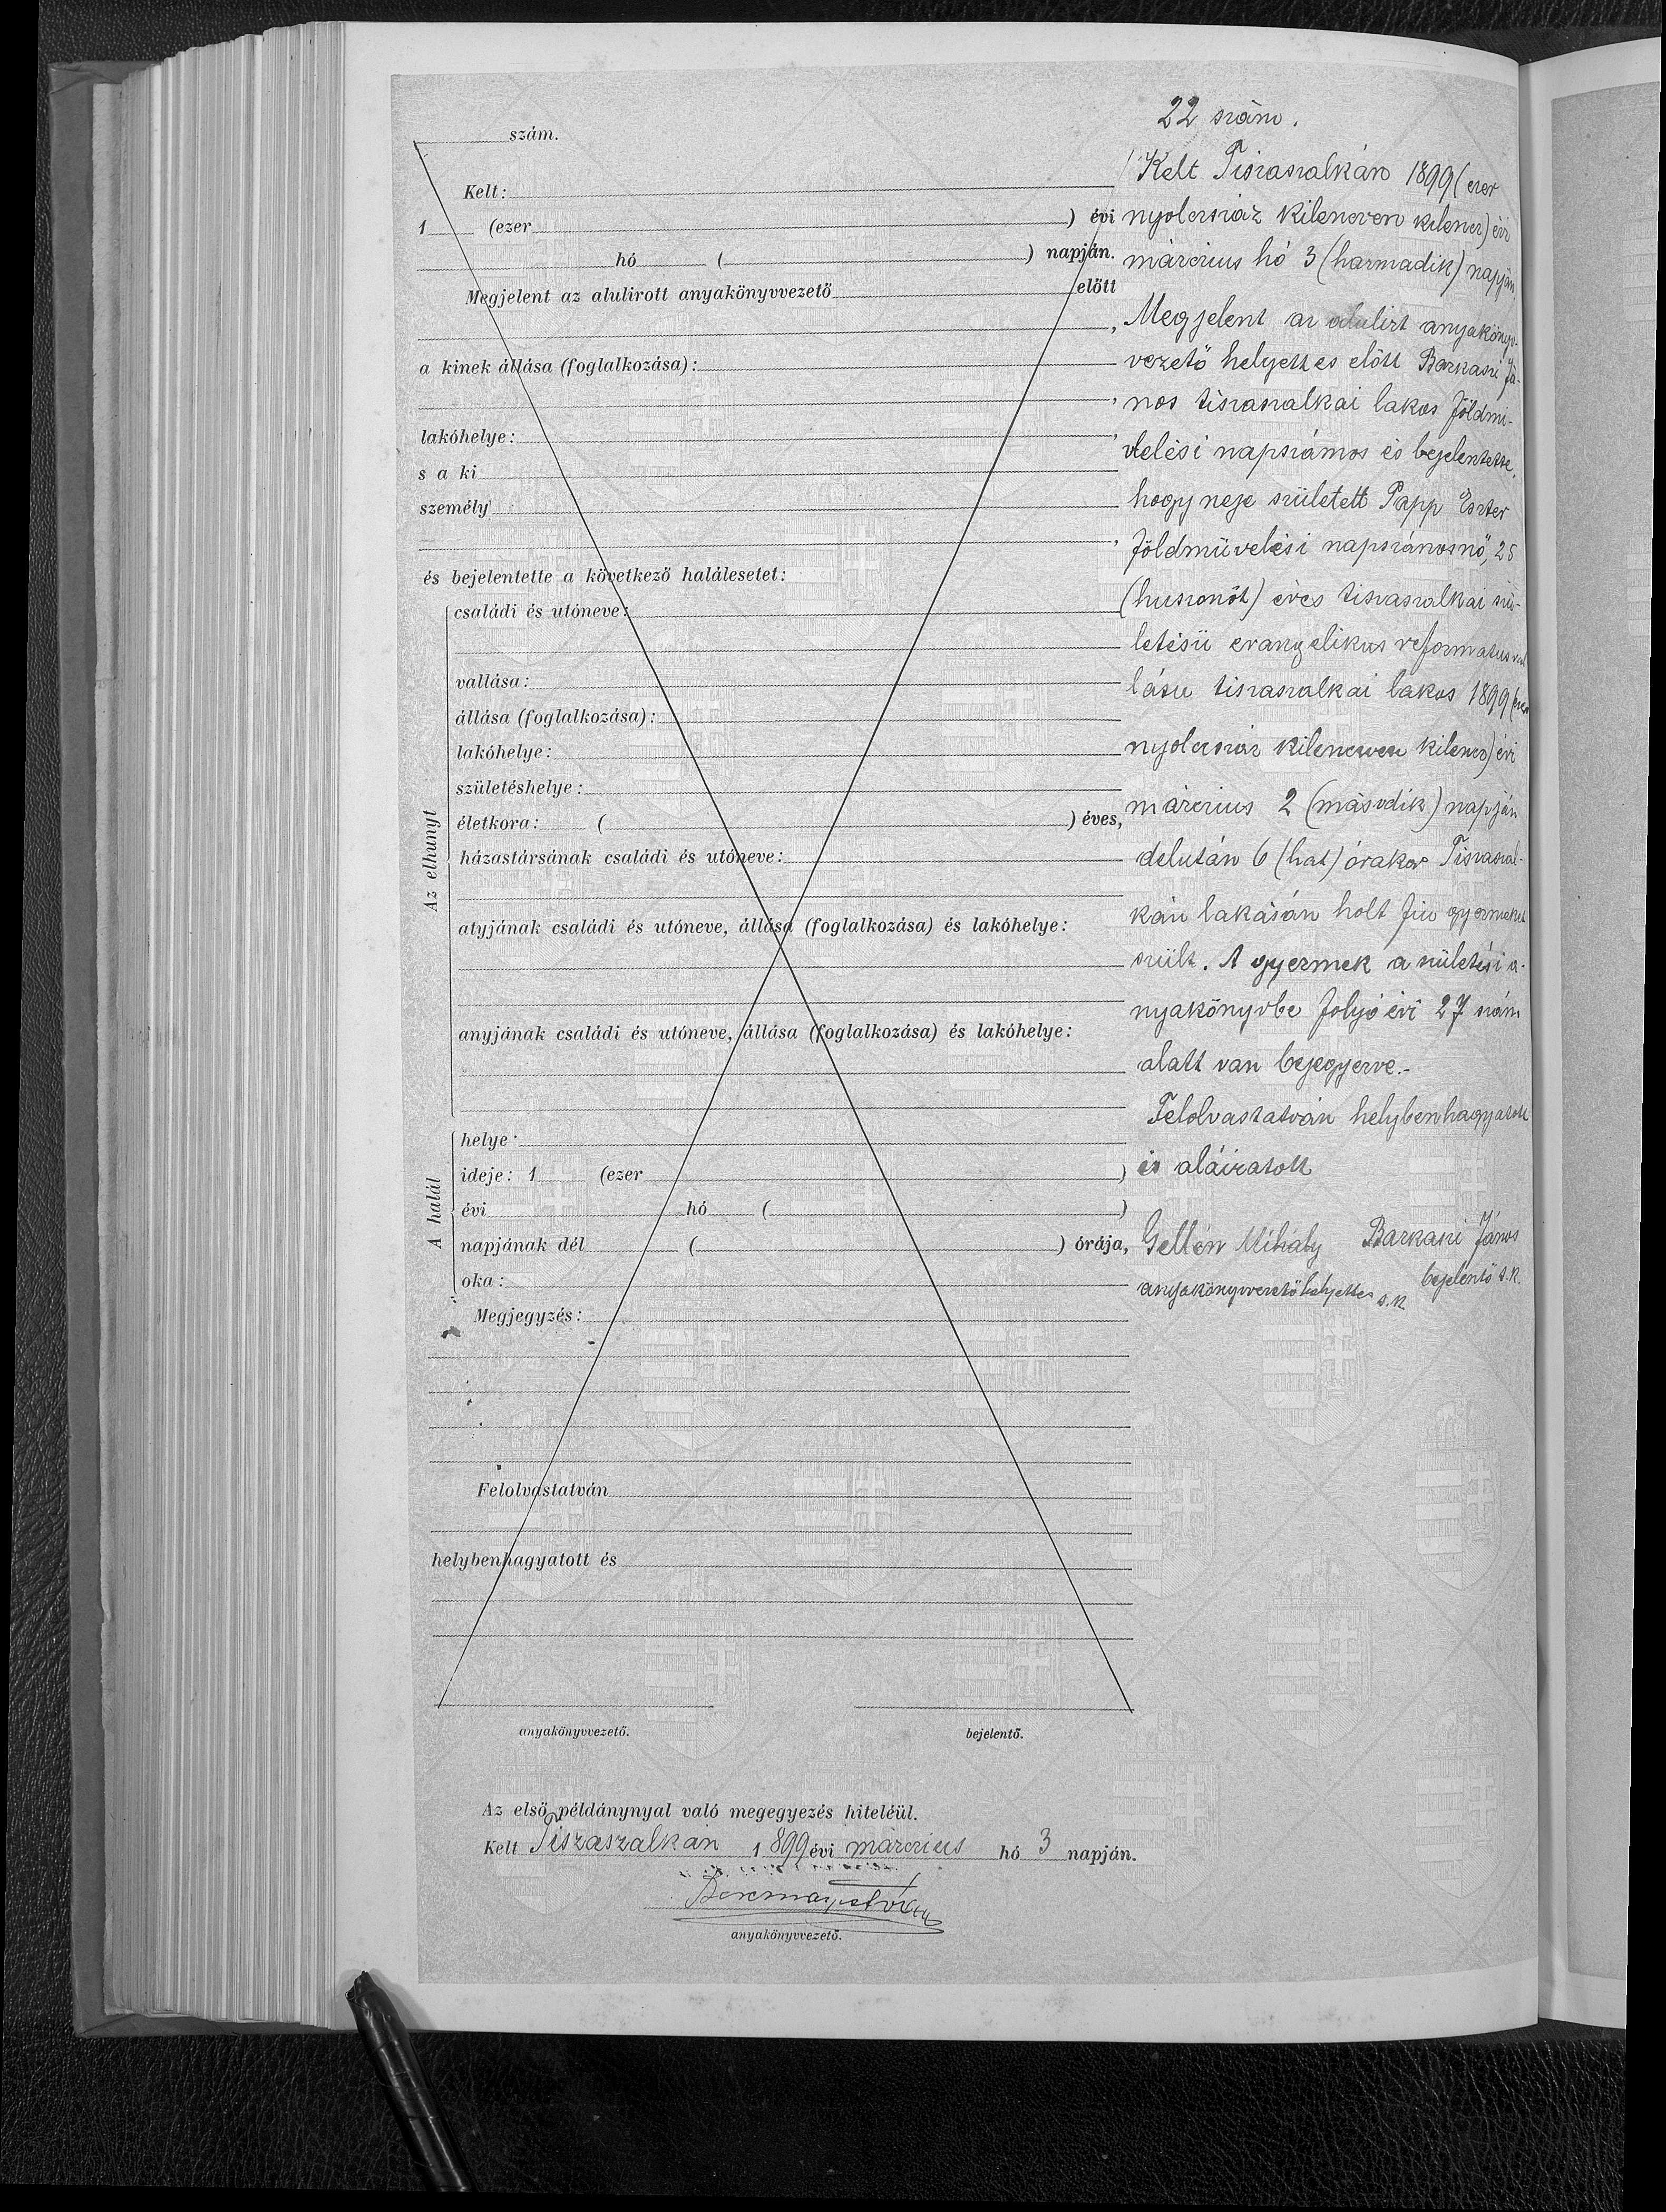 szám.
Kelt:
1 (ezer ) évi
hó ( ) napján.
Megjelent az alulirott anyakönyvvezető előtt
,
a kinek állása (foglalkozása):
,
lakóhelye: ,
s a ki
személy
,
és bejelentette a következő halálesetet:
Az elhunyt
családi és utóneve:
vallása:
állása (foglalkozása):
lakóhelye:
születéshelye:
életkora: ( ) éves,
házastársának családi és utóneve:
atyjának családi és utóneve, állása (foglalkozása) és lakóhelye:
anyjának családi és utóneve, állása (foglalkozása) és lakóhelye:
A halál
helye:
ideje: 1 (ezer )
évi hó ( )
napjának dél ( ) órája,
oka:
Megjegyzés:
Felolvastatván
helybenhagyatott és
anyakönyvvezető. bejelentő.
22 szám.
Kelt Tiszaszalkán 1899 (ezer
nyolczszáz kilenczven kilencz) évi
márczius hó 3 (harmadik) napján.
Megjelent az alulirt anyakönyv-
vezető helyettes előtt Barkaszi Já-
nos tiszaszalkai lakos földmi-
velési napszámos és bejelentette,
hogy neje született Papp Eszter
földmüvelési napszámosnő, 25
(huszonöt) éves tiszaszalkai szü-
letésü evangelikus reformatus val
lásu tiszaszalkai lakos 1899 (ezer
nyolczszáz kilenczven kilencz) évi
márczius 2 (második) napján
délután 6 (hat) órakor Tiszaszal-
kán lakásán holt fiu gyermeket
szült. A gyermek a születési a-
nyakönyvbe folyó évi 27 szám
alatt van bejegyezve.-
Felolvastatván helybenhagyatott
és aláiratott
Gellén Mihály Barkaszi János
anyakönyvvezető helyettes s.k. bejelentő s.k.
Az első példánynyal való megegyezés hiteléül.
Kelt Tiszaszalkán 1899 évi márczius hó 3 napján.
anyakönyvvezető.